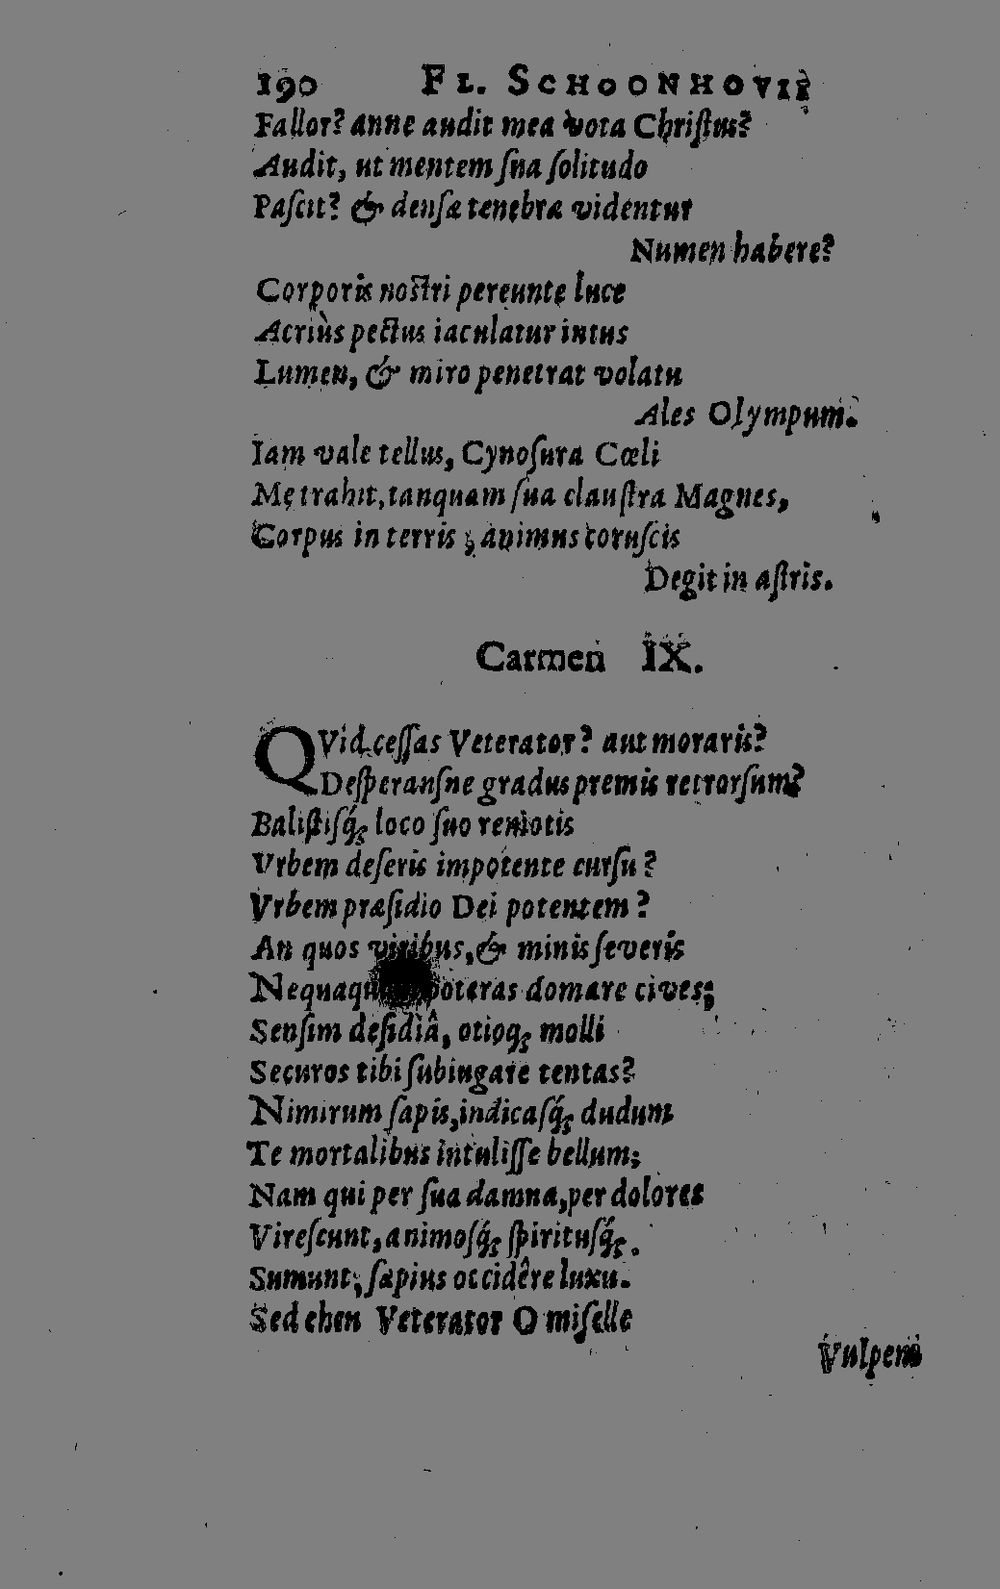 190 FL. SCHOONHOVII
Fallor? anne audit mea vota Chriſtus?
Audit, ut mentem ſua ſolitudo
Paſcit? & denſæ tenebræ videntur
Numen habere?
Corporis noſtri pereunte luce
Acriùs pectus iaculatur intus
Lumen, & miro penetrat volatu
Ales Olympum.
Iam vale tellus, Cynoſura Cœli
Me trahit, tanquam ſua clauſtra Magnes,
Corpus in terris, animus coruſcis
Degit in aſtris.
Carmen IX.
QVid ceſſas Veterator? aut moraris?
Deſperanſne gradus premis retrorſum?
Baliſtiſq́; loco ſuo remotis
Vrbem deſeris impotente curſu?
Vrbem præſidio Dei potentem?
An quos viribus, & minis ſeveris
Nequaquam poteras domare cives;
Senſim deſidiâ, otioq; molli
Securos tibi ſubiugare tentas?
Nimirum ſapis, indicaſq́; dudum
Te mortalibus intuliſſe bellum;
Nam qui per ſua damna, per dolores
Vireſcunt, animoſq́; ſpirituſq́;.
Sumunt, ſæpius occidêre luxu.
Sed eheu Veterator O miſelle
Vulpem